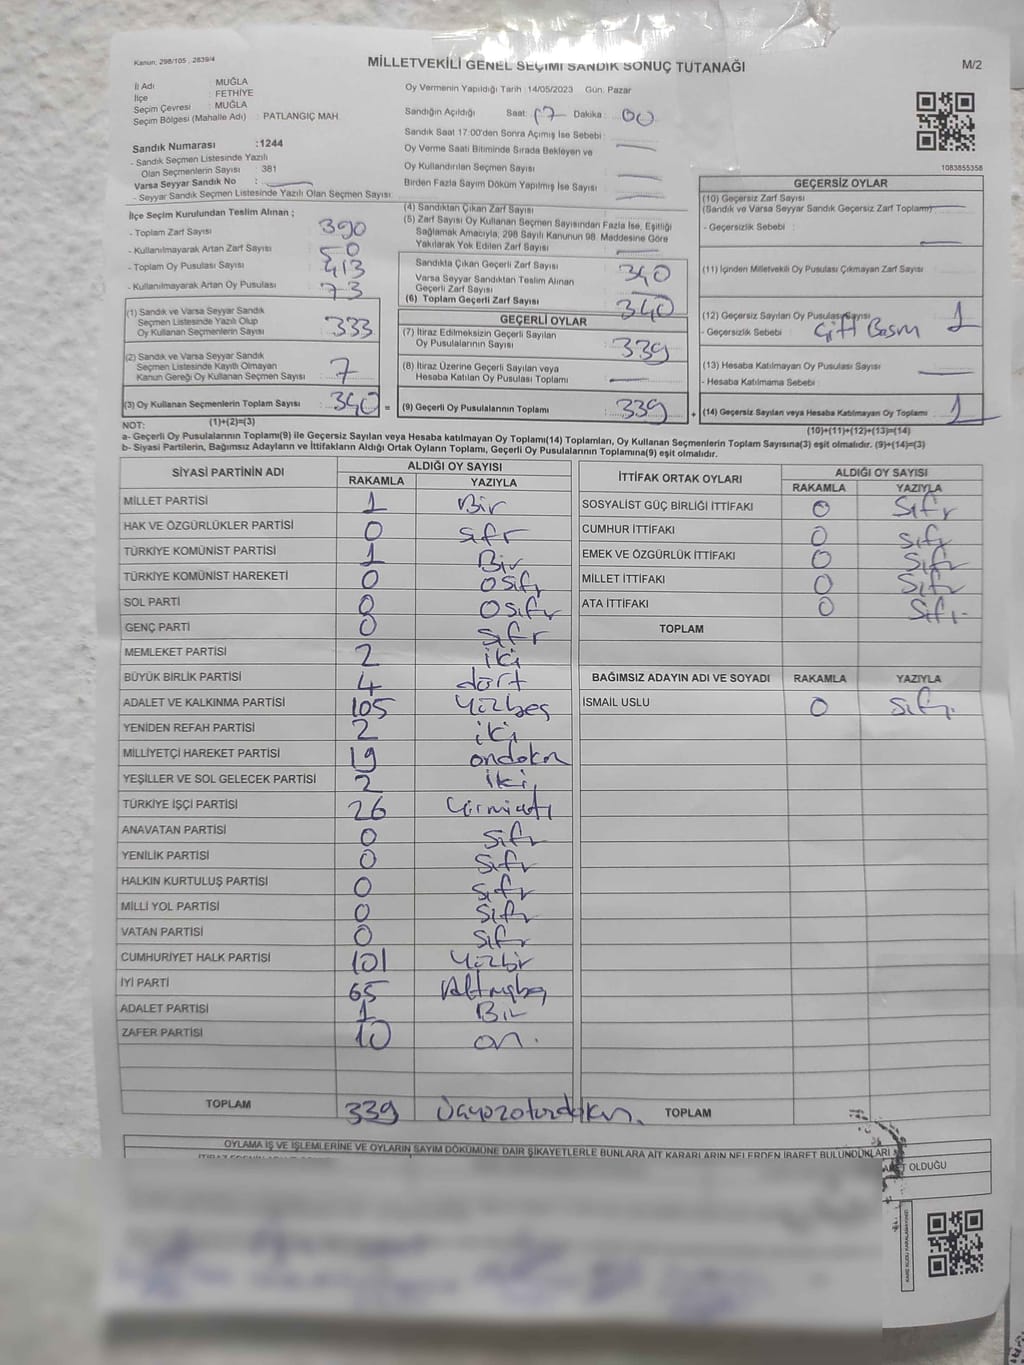 Kanun, 298/105 , 2839/4
MİLLETVEKİLİ GENEL SEÇİMİ SANDIK SONUÇ TUTANAĞI
M/2
İl Adı : MUĞLA
İlçe : FETHİYE
Seçim Çevresi : MUĞLA
Seçim Bölgesi (Mahalle Adı) : PATLANGIÇ MAH.
Oy Vermenin Yapıldığı Tarih :14/05/2023 Gün: Pazar
Sandığın Açıldığı Saat: 17 Dakika : 00
Sandık Saat 17:00'den Sonra Açılmış İse Sebebi :
Oy Verme Saati Bitiminde Sırada Bekleyen ve
Oy Kullandırılan Seçmen Sayısı :
Birden Fazla Sayım Döküm Yapılmış İse Sayısı :
1083855358
Sandık Numarası :1244
- Sandık Seçmen Listesinde Yazılı
Olan Seçmenlerin Sayısı : 381
Varsa Seyyar Sandık No :
- Seyyar Sandık Seçmen Listesinde Yazılı Olan Seçmen Sayısı:
İlçe Seçim Kurulundan Teslim Alınan ;
- Toplam Zarf Sayısı : 390
- Kullanılmayarak Artan Zarf Sayısı : 50
- Toplam Oy Pusulası Sayısı : 413
- Kullanılmayarak Artan Oy Pusulası : 73
(1) Sandık ve Varsa Seyyar Sandık
Seçmen Listesinde Yazılı Olup
Oy Kullanan Seçmenlerin Sayısı : 333
(2) Sandık ve Varsa Seyyar Sandık
Seçmen Listesinde Kayıtlı Olmayan
Kanun Gereği Oy Kullanan Seçmen Sayısı : 7
(3) Oy Kullanan Seçmenlerin Toplam Sayısı : 340 =
(1)+(2)=(3)
(4) Sandıktan Çıkan Zarf Sayısı :
(5) Zarf Sayısı Oy Kullanan Seçmen Sayısından Fazla İse, Eşitliği
Sağlamak Amacıyla; 298 Sayılı Kanunun 98. Maddesine Göre
Yakılarak Yok Edilen Zarf Sayısı :
Sandıkta Çıkan Geçerli Zarf Sayısı : 340
Varsa Seyyar Sandıktan Teslim Alınan
Geçerli Zarf Sayısı :
(6) Toplam Geçerli Zarf Sayısı : 340
GEÇERLİ OYLAR
(7) İtiraz Edilmeksizin Geçerli Sayılan
Oy Pusulalarının Sayısı : 339
(8) İtiraz Üzerine Geçerli Sayılan veya
Hesaba Katılan Oy Pusulası Toplamı :
(9) Geçerli Oy Pusulalarının Toplamı : 339 +
GEÇERSİZ OYLAR
(10) Geçersiz Zarf Sayısı
(Sandık ve Varsa Seyyar Sandık Geçersiz Zarf Toplamı)
- Geçersizlik Sebebi :
(11) İçinden Milletvekili Oy Pusulası Çıkmayan Zarf Sayısı :
(12) Geçersiz Sayılan Oy Pusulası Sayısı : 1
- Geçersizlik Sebebi : Çift Basım
(13) Hesaba Katılmayan Oy Pusulası Sayısı :
- Hesaba Katılmama Sebebi :
(14) Geçersiz Sayılan veya Hesaba Katılmayan Oy Toplamı : 1
(10)+(11)+(12)+(13)=(14)
NOT:
a- Geçerli Oy Pusulalarının Toplamı(9) ile Geçersiz Sayılan veya Hesaba katılmayan Oy Toplamı(14) Toplamları, Oy Kullanan Seçmenlerin Toplam Sayısına(3) eşit olmalıdır. (9)+(14)=(3)
b- Siyasi Partilerin, Bağımsız Adayların ve İttifakların Aldığı Ortak Oyların Toplamı, Geçerli Oy Pusulalarının Toplamına(9) eşit olmalıdır.
SİYASİ PARTİNİN ADI ALDIĞI OY SAYISI
RAKAMLA YAZIYLA
MİLLET PARTİSİ 1 Bir
HAK VE ÖZGÜRLÜKLER PARTİSİ 0 sıfr
TÜRKİYE KOMÜNİST PARTİSİ 1 Bir
TÜRKİYE KOMÜNİST HAREKETİ 0 0 sıfr
SOL PARTİ 0 0 sıfr
GENÇ PARTİ 0 sıfr
MEMLEKET PARTİSİ 2 iki
BÜYÜK BİRLİK PARTİSİ 4 dört
ADALET VE KALKINMA PARTİSİ 105 Yüzbeş
YENİDEN REFAH PARTİSİ 2 iki
MİLLİYETÇİ HAREKET PARTİSİ 19 ondokuz
YEŞİLLER VE SOL GELECEK PARTİSİ 2 iki
TÜRKİYE İŞÇİ PARTİSİ 26 Yirmialtı
ANAVATAN PARTİSİ 0 Sıfr
YENİLİK PARTİSİ 0 Sıfr
HALKIN KURTULUŞ PARTİSİ 0 Sıfr
MİLLİ YOL PARTİSİ 0 Sıfr
VATAN PARTİSİ 0 Sıfr
CUMHURİYET HALK PARTİSİ 101 Yüzbir
İYİ PARTİ 65 Altmışbeş
ADALET PARTİSİ 1 Bir
ZAFER PARTİSİ 10 on.
TOPLAM 339 Üçyüzotuzdokuz.
İTTİFAK ORTAK OYLARI ALDIĞI OY SAYISI
RAKAMLA YAZIYLA
SOSYALİST GÜÇ BİRLİĞİ İTTİFAKI 0 Sıfr
CUMHUR İTTİFAKI 0 Sıfr
EMEK VE ÖZGÜRLÜK İTTİFAKI 0 Sıfr
MİLLET İTTİFAKI 0 Sıfr
ATA İTTİFAKI 0 Sıfr
TOPLAM
BAĞIMSIZ ADAYIN ADI VE SOYADI RAKAMLA YAZIYLA
İSMAİL USLU 0 Sıfr
TOPLAM
OYLAMA İŞ VE İŞLEMLERİNE VE OYLARIN SAYIM DÖKÜMÜNE DAİR ŞİKAYETLERLE BUNLARA AİT KARARLARIN NELERDEN İBARET BULUNDUKLARI
OLDUĞU